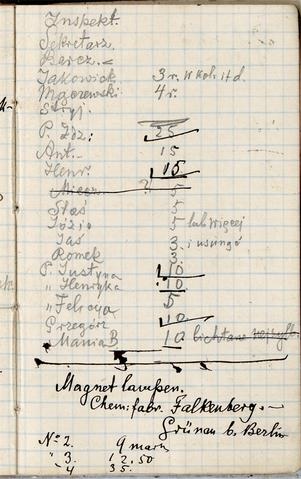 Inspekt.
Sekretarz.
Bercz.
Jakowick 3 r. W Kol. itd.
Maczewski 4 r.
Stryj
P. Idz: 25
Ant. 15
Henr. 15
Miecz 5
Staś 5
Józio 5 lub więcej
Jaś 3. i
Romek 3.
P. Justyna 10.
" Henryka 10.
" Felicya 5
Grzegórz 10
Mania B 10
Magnet lampen.
Chem. fabr. Falkenberg.
Grünau b. Berlin
No 2. 9 mark
" 3. 12.50
" 4 35.